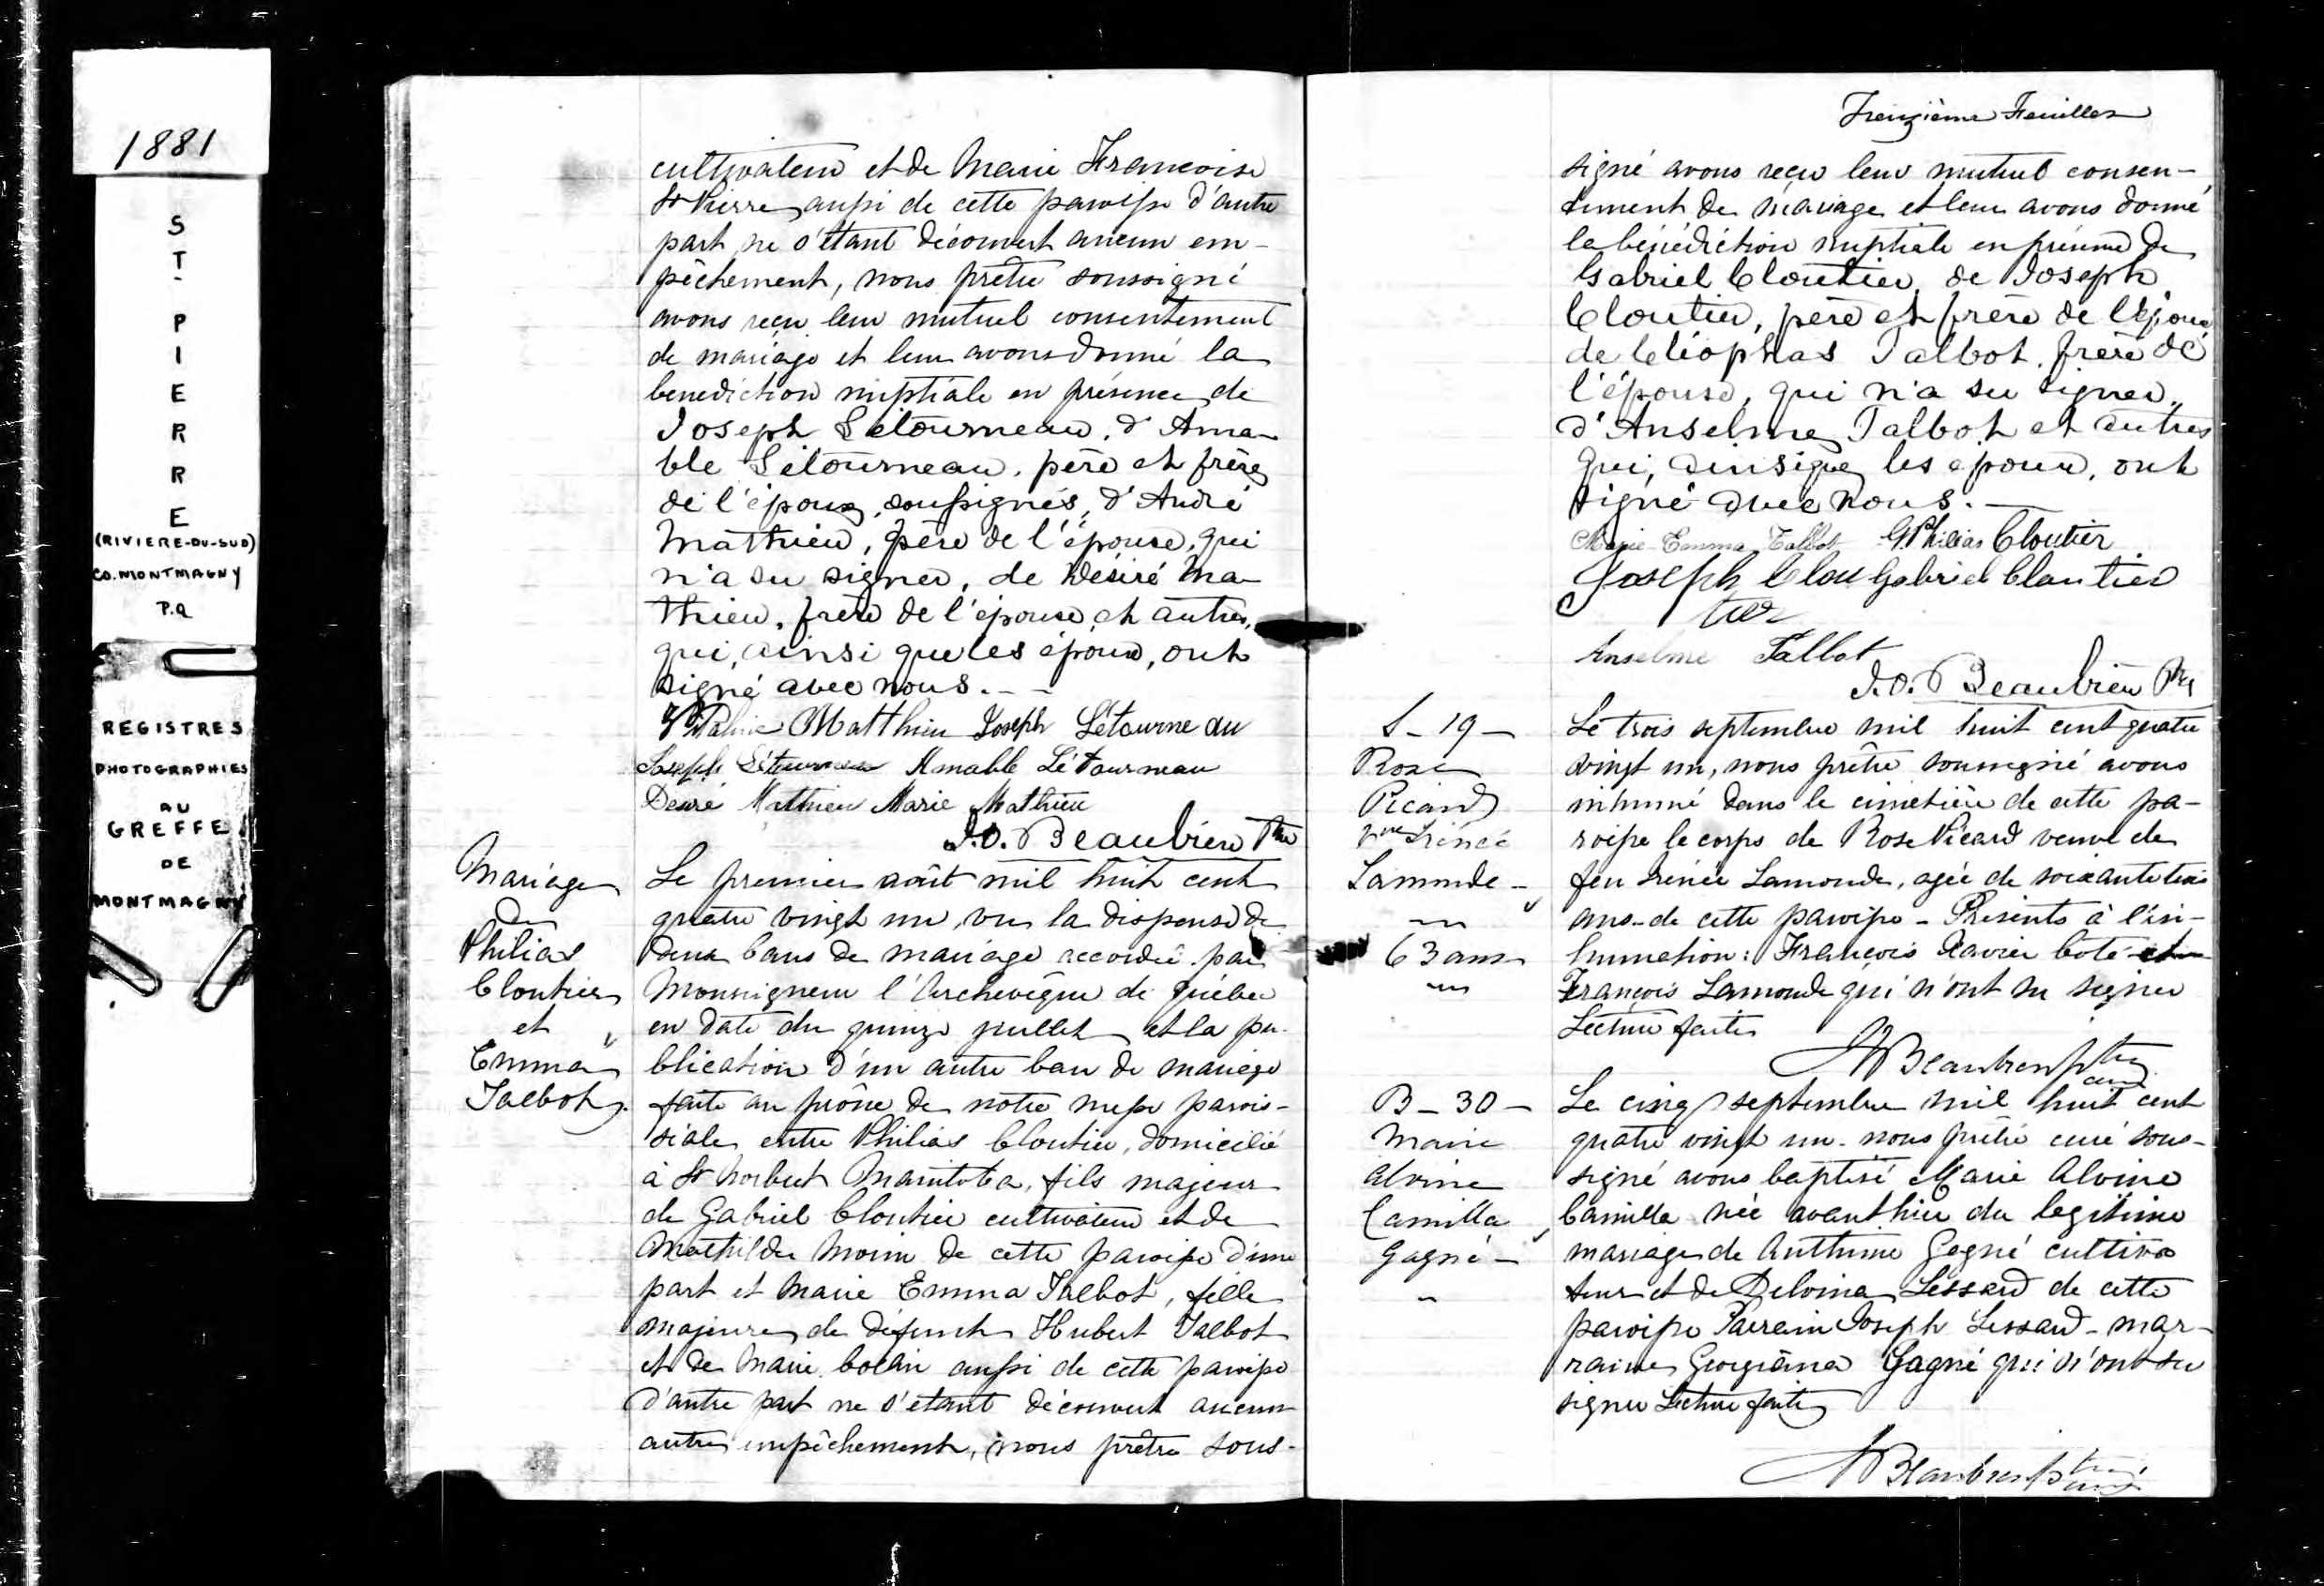 1881
ST-PIERRE
(RIVIERE-DU-SUD)
CO. MONTMAGNY
P.Q
REGISTRES
PHOTOGRAPHIES
AU
GREFFE
DE
MONTMAGNY
cultivateur et de Marie Françoise
St Pierre aussi de cette paroisse d'autre
part ne s'étant découvert aucun em-
pêchement, nous prêtre soussigné
avons reçu leur mutuel consentement
de mariage et leur avons donné la
benediction nuptiale en présence de
Joseph Létourneau, d'Ama-
ble Létourneau, père et frère
de l'époux, soussignés, d'André
Mathieu, père de l'épouse, qui
n'a su signer, de Désiré Ma-
thieu, frère de l'épouse, et autres,
qui, ainsi que les époux, ont
signé avec nous. - -
Matthieu Joseph Létourneau
Joseph Létourneau Amable Létourneau
Desiré Matthieu Marie Mathieu
J.O. Beaubien Ptre
Mariage
de
Philias
Cloutier
et
Emma
Talbot.
Le premier août mil huit cent
quatre vingt un, vu la dispense de
deux bans de mariage accordée par
Monseigneur l'Archevêque de Québec
en date du quinze juillet et la pu-
blication d'un autre ban de mariage
faite au prône de notre messe parois-
siale entre Philias Cloutier, domicilié
à St Norbert Manitoba, fils majeur
de Gabriel Cloutier cultivateur et de
Mathilde Morin de cette paroisse d'une
part et Marie Emma Talbot, fille
majeure de défunt Hubert Talbot
et de Marie Colin aussi de cette paroisse
d'autre part ne s'étant découvert aucun
autre empêchement, nous prêtre sous-
Treizième Feuillet
signé avons reçu leur mutuel consen-
tement de mariage et leur avons donné
la bénédiction nuptiale en présence de
Gabriel Cloutier, de Joseph
Cloutier, père et frère de l'époux
de Cléophas Talbot, frère de
l'épouse, qui n'a su signer,
d'Anselme Talbot et autres
qui, ainsi que les époux, ont
signé avec nous. -
Marie Emma Talbot G. Philias Cloutier
Joseph Clou Gabriel Cloutier
tier
Anselme Talbot
J.O. Beaubien Ptre
S - 19 -
Rose
Picard
Vve Irénée
Lamonde -
63 ans
Le trois septembre mil huit cent quatre
vingt un, nous prêtre soussigné avons
inhumé dans le cimetière de cette pa-
roisse le corps de Rose Picard veuve de
feu Irénée Lamonde, agée de soixante trois
ans de cette paroisse - Présents à l'in-
humation: François Xavier Coté et
François Lamonde qui n'ont su signer
Lecture faite
Beaubien ptre
curé
B - 30 -
Marie
Alvine
Camilla
Gagné -
Le cinq septembre mil huit cent
quatre vingt un nous prêtre curé sous-
signé avons baptisé Marie Alvine
Camilla née avant hier du legitime
mariage de Anthime Gagné cultiva
teur et de Delvina Lessard de cette
paroisse Parrain Joseph Lessard - mar-
raine Georgiana Gagné qui n'ont su
signer Lecture faite
Beaubien ptre
curé